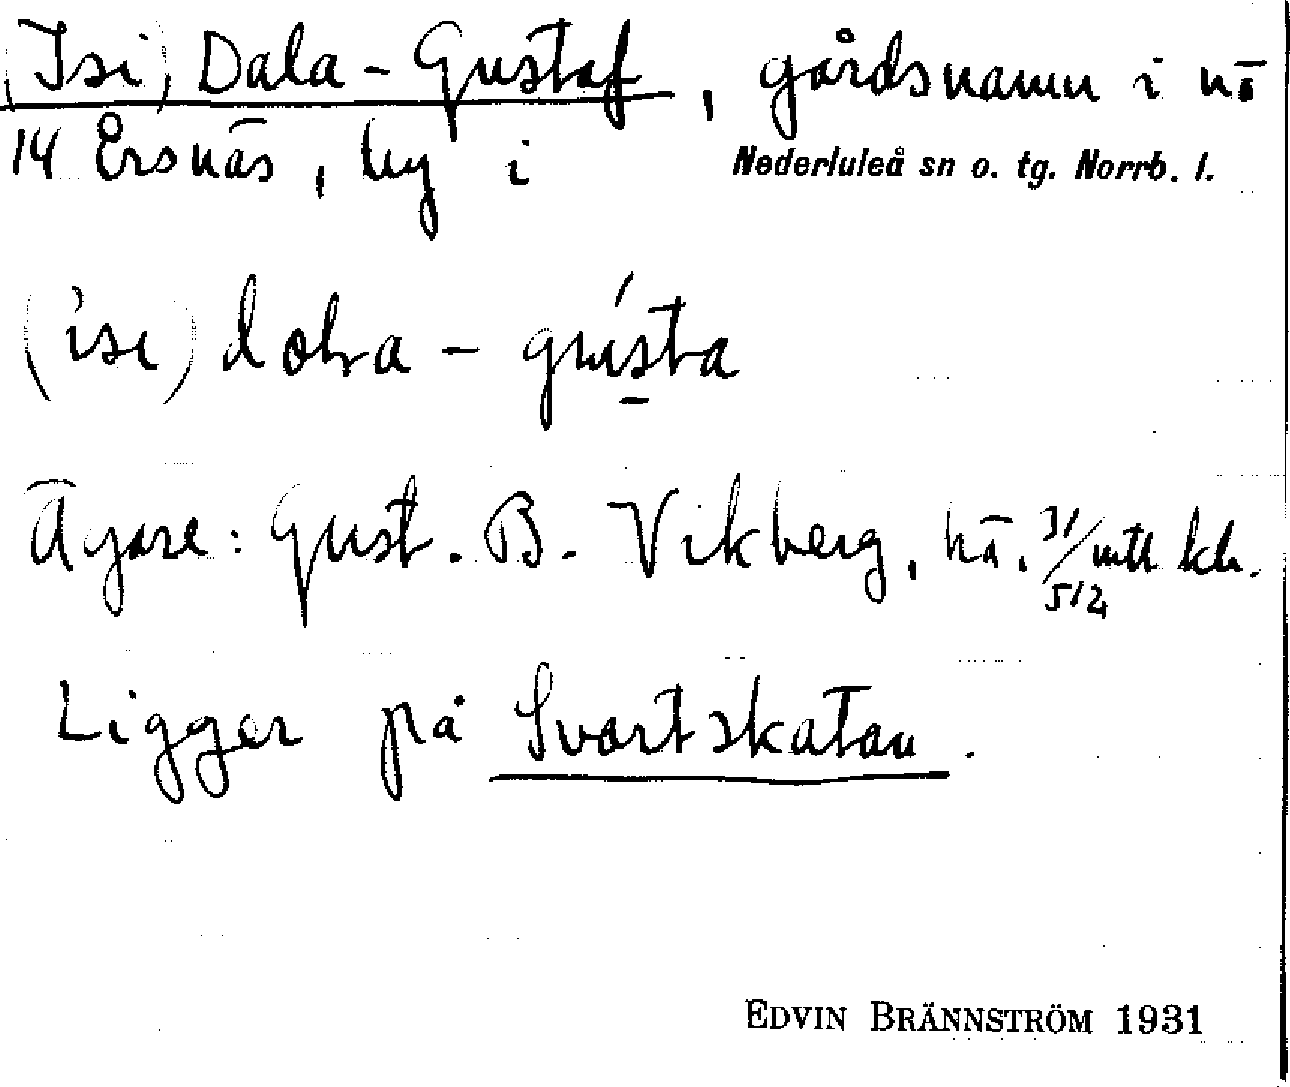 (Isi) Dala-Gustaf, gårdsnamn i nr
14 Ersnäs, by i Nederluleå sn o. tg. Norrb. l.
(isi) dola - gústa
Ägare: Gust. B. Vikberg, nr. 31/512 mtl kr.
Ligger på Svartskatan.
EDVIN BRÄNNSTRÖM 1931